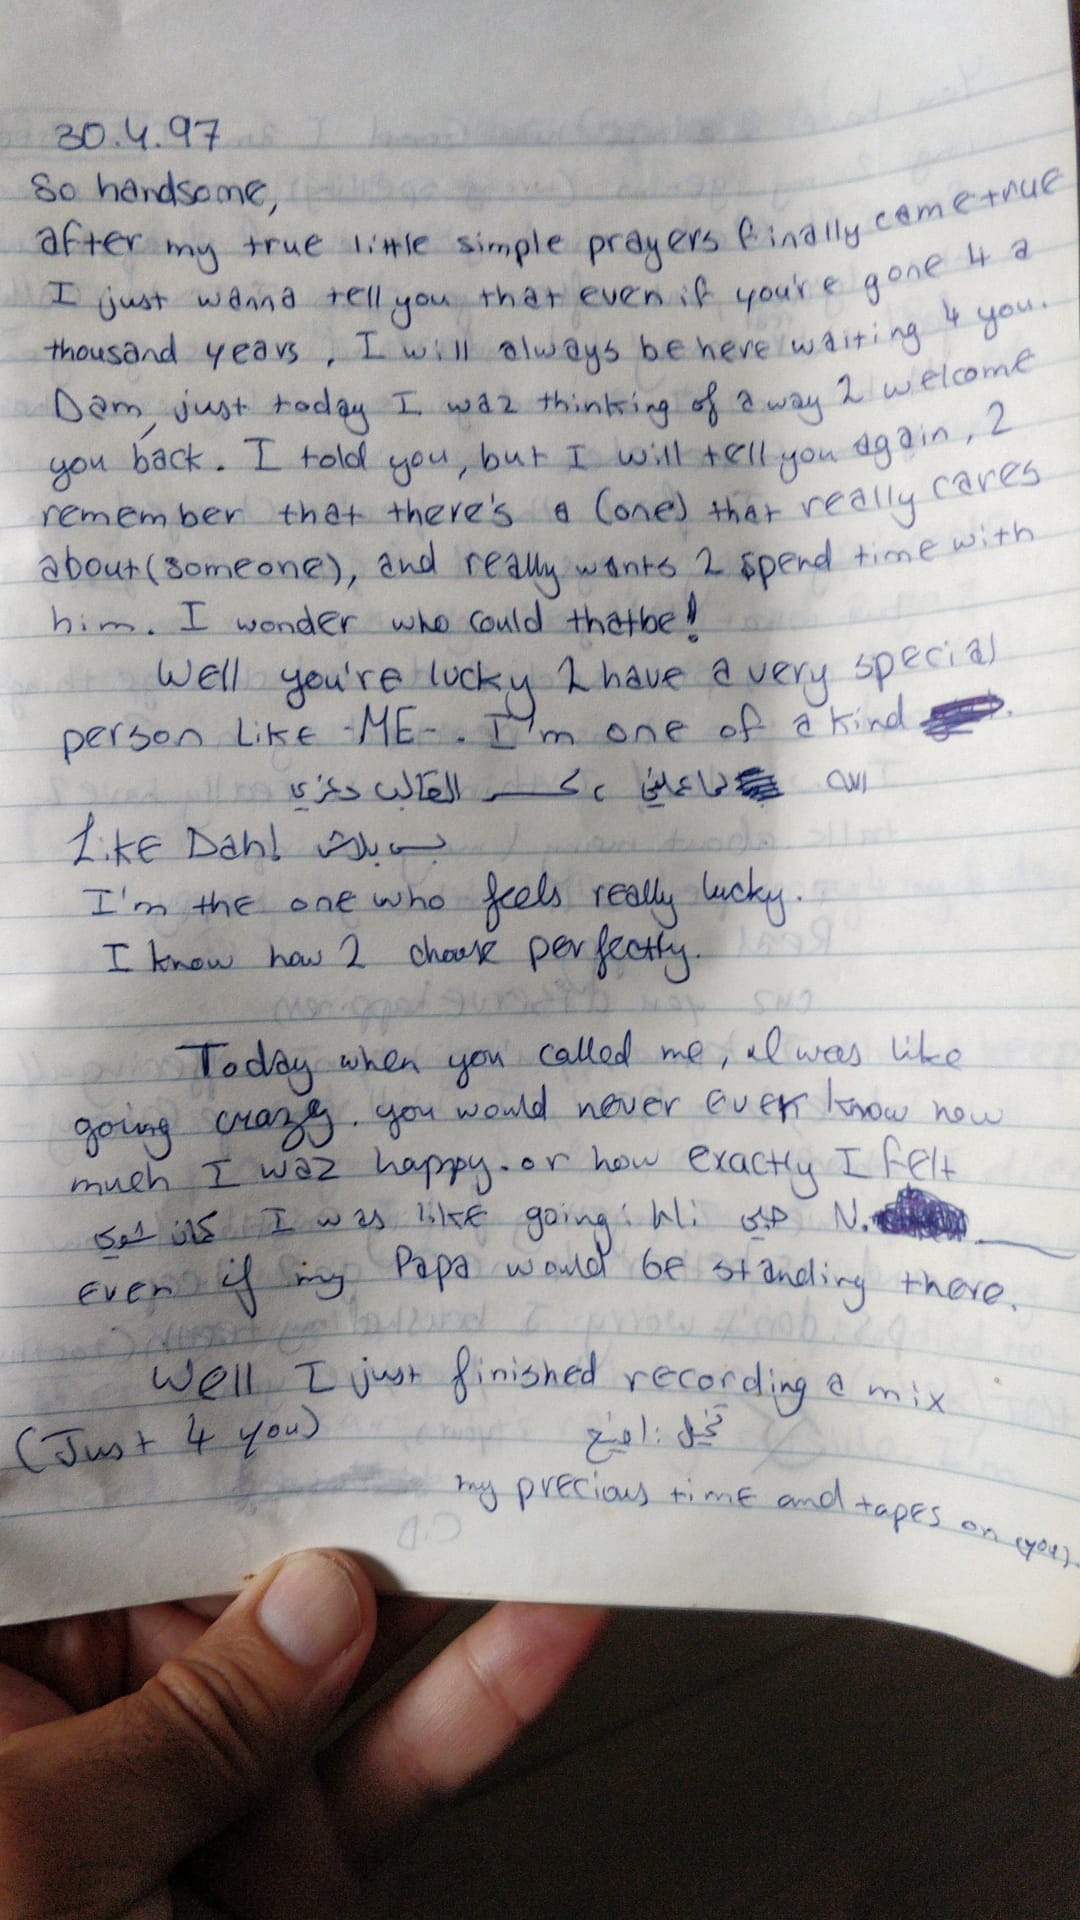 30.4.97
So handsome,
after my true little simple prayers finally came true
I just wanna tell you that even if you're gone 4 a
thousand years, I will always be here waiting 4 you.
Dam, just today I waz thinking of a way 2 welcome
you back. I told you, but I will tell you again, 2
remember that there's a (one) that really cares
about (someone), and really wants 2 spend time with
him. I wonder who could that be!
Well you're lucky 2 have a very special
person like -ME-. I'm one of a kind
القالب
Like Dah! بس بلاش
I'm the one who feels really lucky.
I know how 2 choose perfectly.
Today when you called me, I was like
going crazy. you would never ever know how
much I waz happy. or how exactly I felt
كان I was like going: Hi N.
even if my Papa would be standing there.
Well I just finished recording a mix
(Just 4 you) تخيل: اضيع
my precious time and tapes on (you).